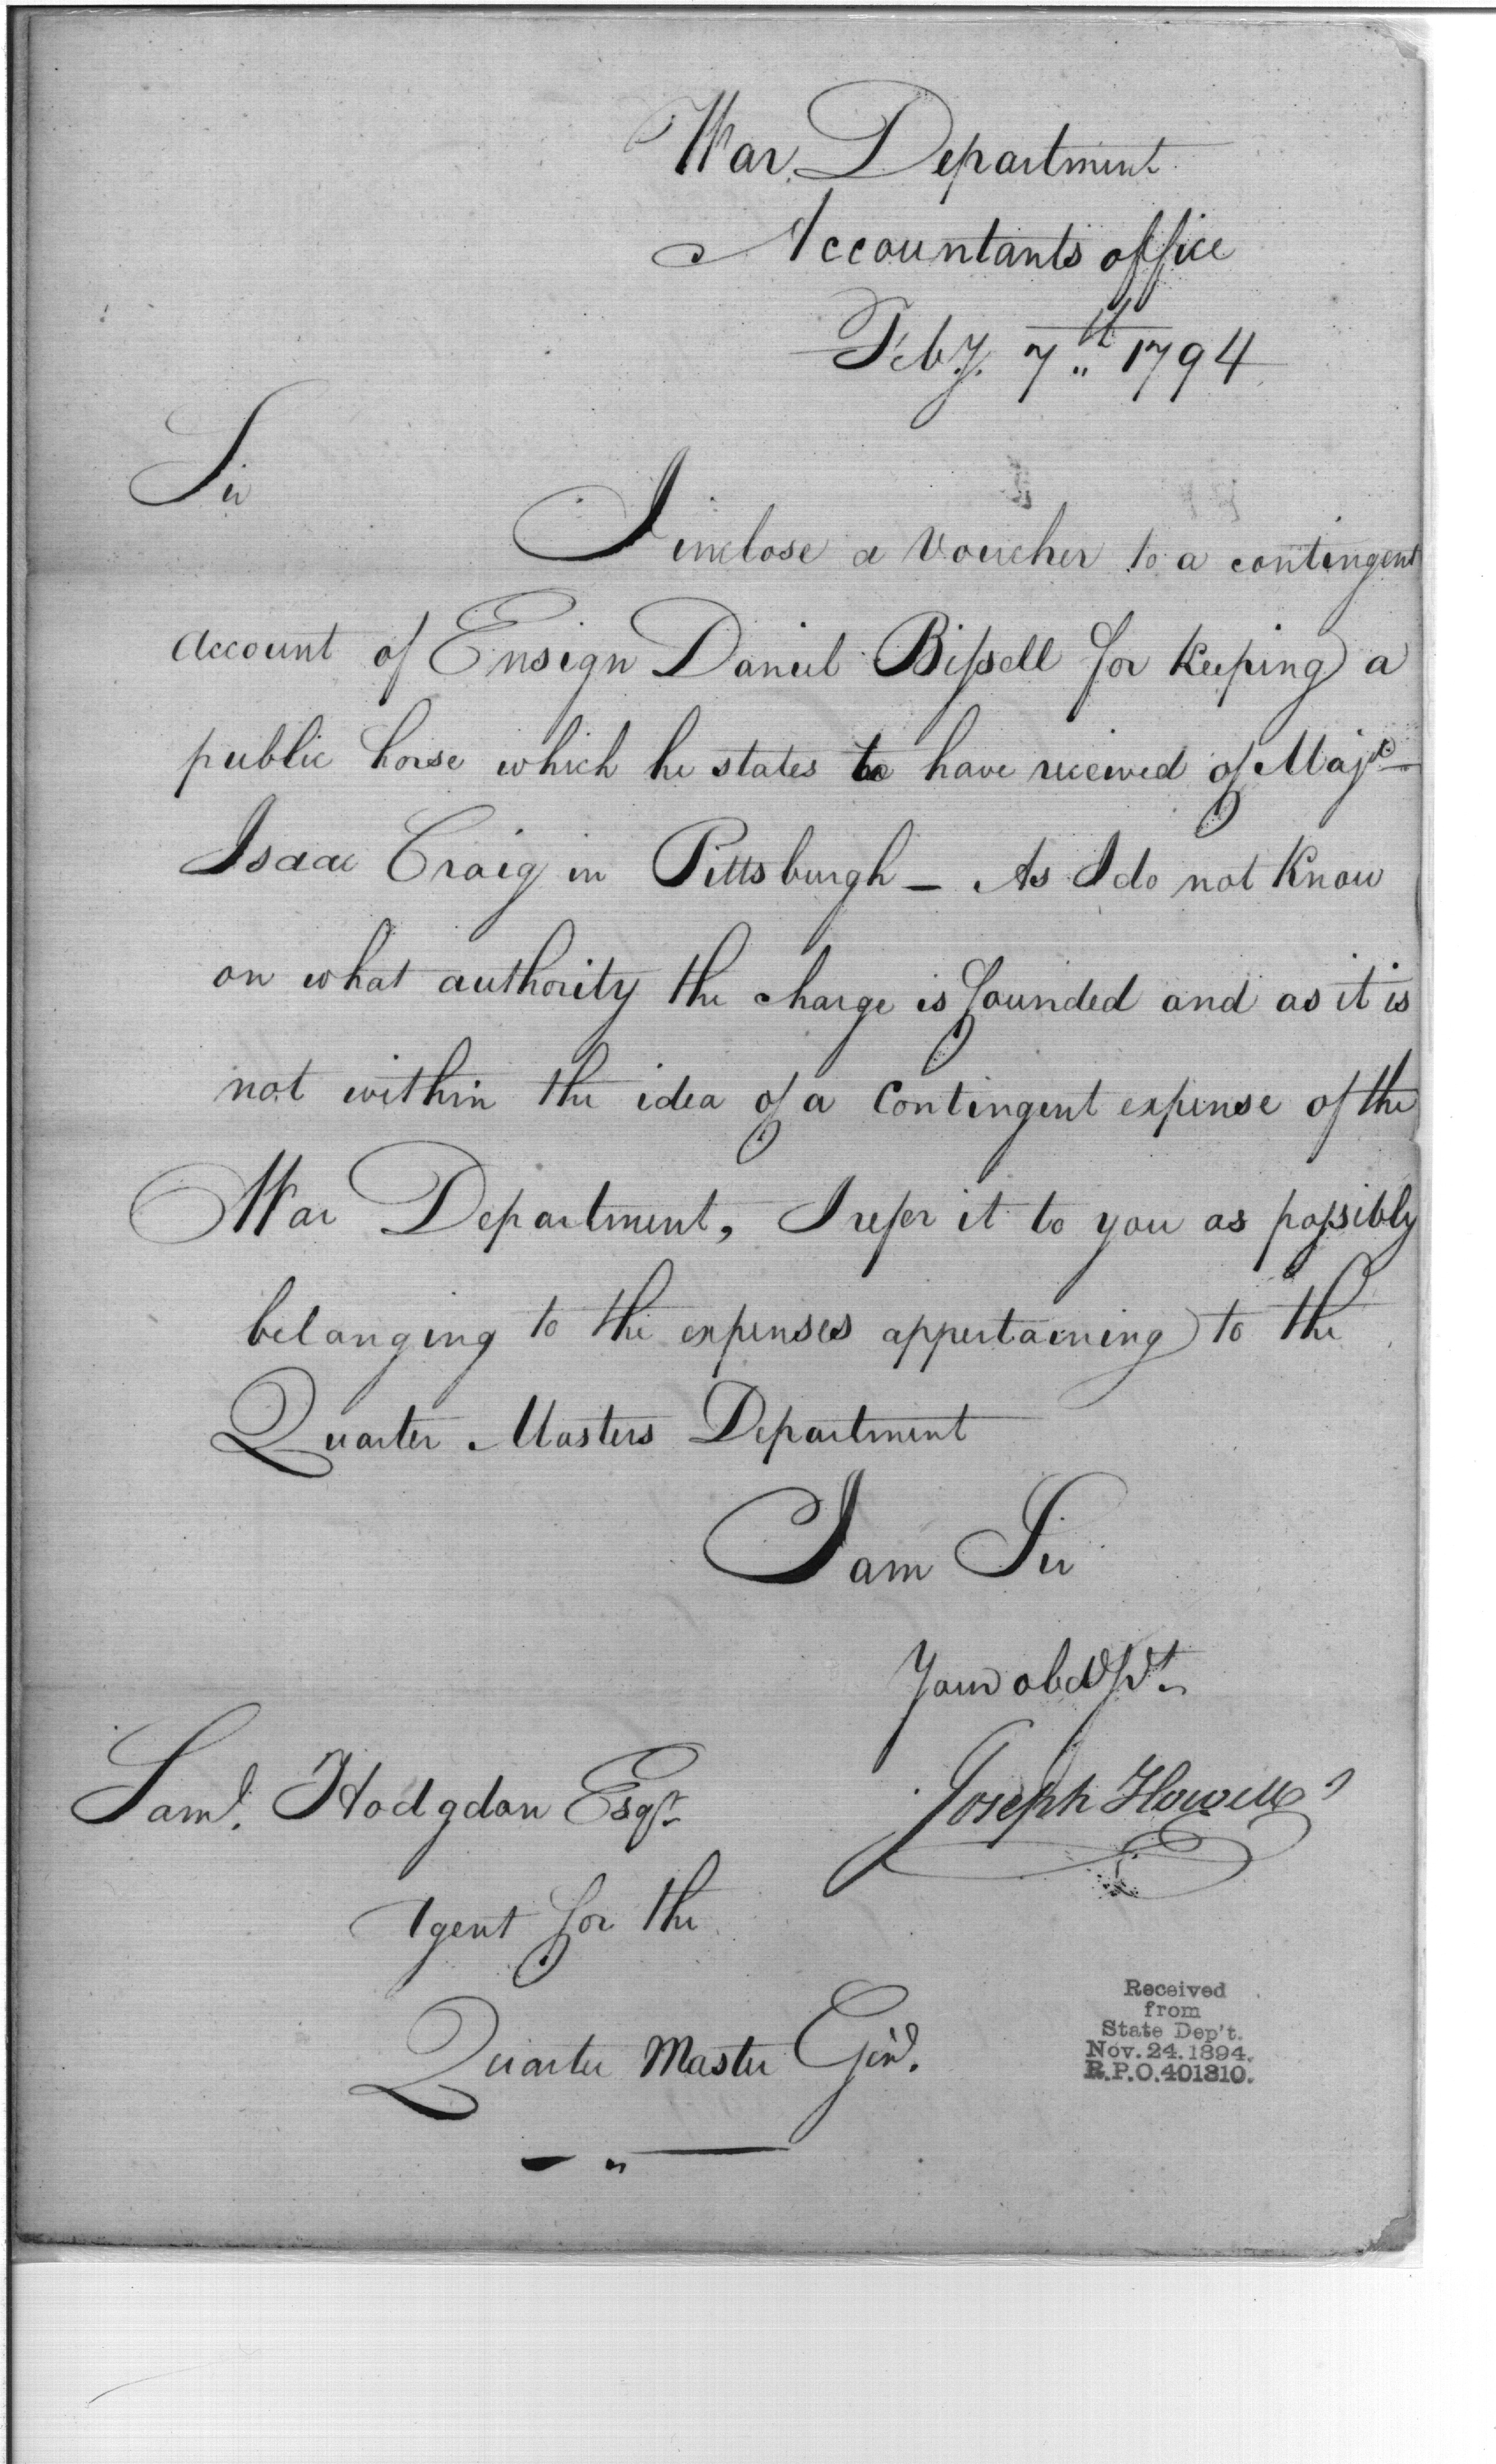 War Department
Accountants office
Feby. 7th 1794
Sir
I inclose a Voucher to a contingent
account of Ensign Daniel Bissell for keeping a
public horse which he states to have received of Majr
Isaac Craig in Pittsburgh – As I do not know
on what authority the charge is founded and as it is
not within the idea of a Contingent expense of the
War Department, I refer it to you as possibly
belonging to the expenses appertaining to the
Quarter Masters Department
I am Sir
Your obd St
Joseph Howell
Saml. Hodgdon Esqr
Agent for the
Quarter Master Genl.
Received
from
State Dep't.
Nov. 24. 1894.
R.P.O. 401310.